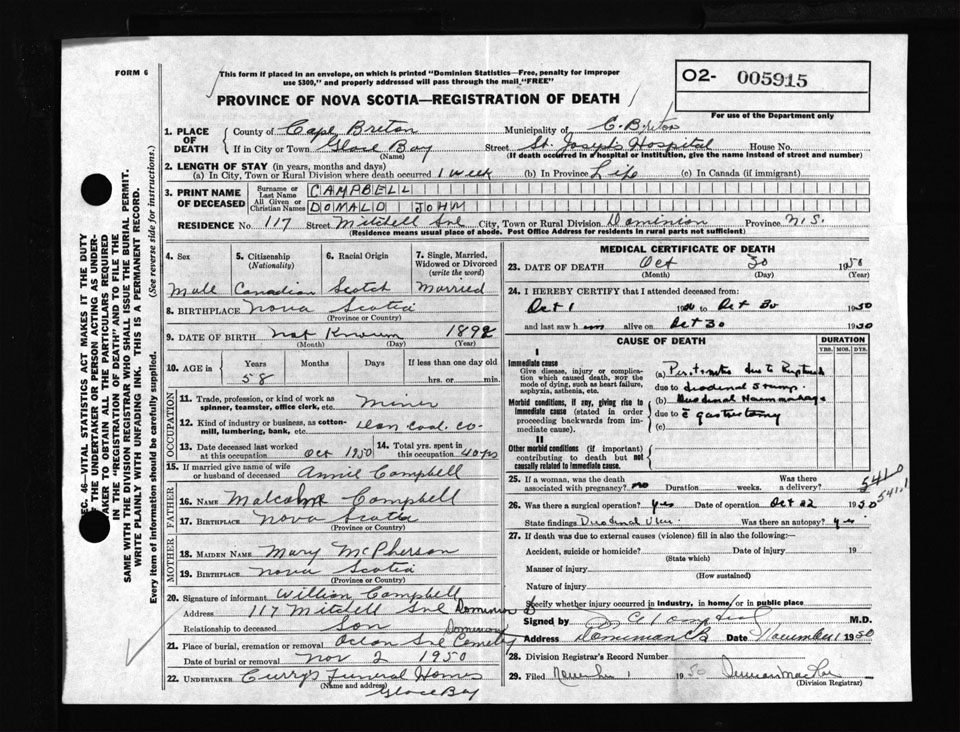 FORM 6
This form if placed in an envelope, on which is printed "Dominion Statistics—Free, penalty for improper
use $300," and properly addressed will pass through the mail "FREE"
PROVINCE OF NOVA SCOTIA—REGISTRATION OF DEATH
O2- 005915
For use of the Department only
SEC. 46—VITAL STATISTICS ACT MAKES IT THE DUTY
OF THE UNDERTAKER OR PERSON ACTING AS UNDER-
TAKER TO OBTAIN ALL THE PARTICULARS REQUIRED
IN THE "REGISTRATION OF DEATH" AND TO FILE THE
SAME WITH THE DIVISION REGISTRAR WHO SHALL ISSUE THE BURIAL PERMIT.
WRITE PLAINLY WITH UNFADING INK. THIS IS A PERMANENT RECORD.
Every item of information should be carefully supplied. (See reverse side for instructions.)
1. PLACE OF DEATH
County of Cape Breton Municipality of C. Breton
If in City or Town Glace Bay Street St. Joseph's Hospital House No.
(Name) (If death occurred in a hospital or institution, give the name instead of street and number)
2. LENGTH OF STAY (in years, months and days)
(a) In City, Town or Rural Division where death occurred 1 week (b) In Province Life (c) In Canada (if immigrant)
3. PRINT NAME OF DECEASED
Surname or Last Name CAMPBELL
All Given or Christian Names DONALD JOHN
RESIDENCE No. 117 Street Mitchell Ave City, Town or Rural Division Dominion Province N.S.
(Residence means usual place of abode. Post Office Address for residents in rural parts not sufficient)
4. Sex 5. Citizenship (Nationality) 6. Racial Origin 7. Single, Married, Widowed or Divorced (write the word)
Male Canadian Scotch Married
8. BIRTHPLACE Nova Scotia
(Province or Country)
9. DATE OF BIRTH Not Known 1892
(Month) (Day) (Year)
10. AGE in Years Months Days If less than one day old
58 hrs. or min.
OCCUPATION
11. Trade, profession, or kind of work as
spinner, teamster, office clerk, etc. Miner
12. Kind of industry or business, as cotton-
mill, lumbering, bank, etc. Dom Coal Co.
13. Date deceased last worked
at this occupation Oct 1950
14. Total yrs. spent in
this occupation 40 yrs
15. If married give name of wife
or husband of deceased Annie Campbell
FATHER
16. NAME Malcolm Campbell
17. BIRTHPLACE Nova Scotia
(Province or Country)
MOTHER
18. MAIDEN NAME Mary McPherson
19. BIRTHPLACE Nova Scotia
(Province or Country)
20. Signature of informant William Campbell
Address 117 Mitchell Ave Dominion
Relationship to deceased Son
21. Place of burial, cremation or removal Ocean Ave Cemetery Dominion
Date of burial or removal Nov 2 1950
22. UNDERTAKER Curry's Funeral Homes
(Name and address) Glace Bay
MEDICAL CERTIFICATE OF DEATH
23. DATE OF DEATH Oct 30 1950
(Month) (Day) (Year)
24. I HEREBY CERTIFY that I attended deceased from:
Oct 1 1950 to Oct 30 1950
and last saw him alive on Oct 30 1950
CAUSE OF DEATH DURATION
YRS. MOS. DYS.
I
Immediate cause
Give disease, injury or complica-
tion which caused death, NOT the
mode of dying, such as heart failure,
asphyxia, asthenia, etc.
(a) Peritonitis due to Ruptured
due to Duodenal Stump
Morbid conditions, if any, giving rise to
immediate cause (stated in order
proceeding backwards from im-
mediate cause).
(b) Duodenal Haemorrhage
due to c̄ gastrectomy
(c)
II
Other morbid conditions (if important)
contributing to death but not
causally related to immediate cause.
25. If a woman, was the death
associated with pregnancy? no Duration weeks. Was there
a delivery?
541.0
541.1
26. Was there a surgical operation? Yes Date of operation Oct 22 1950
State findings Duodenal Ulcer Was there an autopsy? yes
27. If death was due to external causes (violence) fill in also the following:—
Accident, suicide or homicide? Date of injury 19
(State which)
Manner of injury
(How sustained)
Nature of injury
Specify whether injury occurred in industry, in home or in public place
Signed by M.D.
Address Date November 1 1950
28. Division Registrar's Record Number
29. Filed November 1 1950
(Division Registrar)